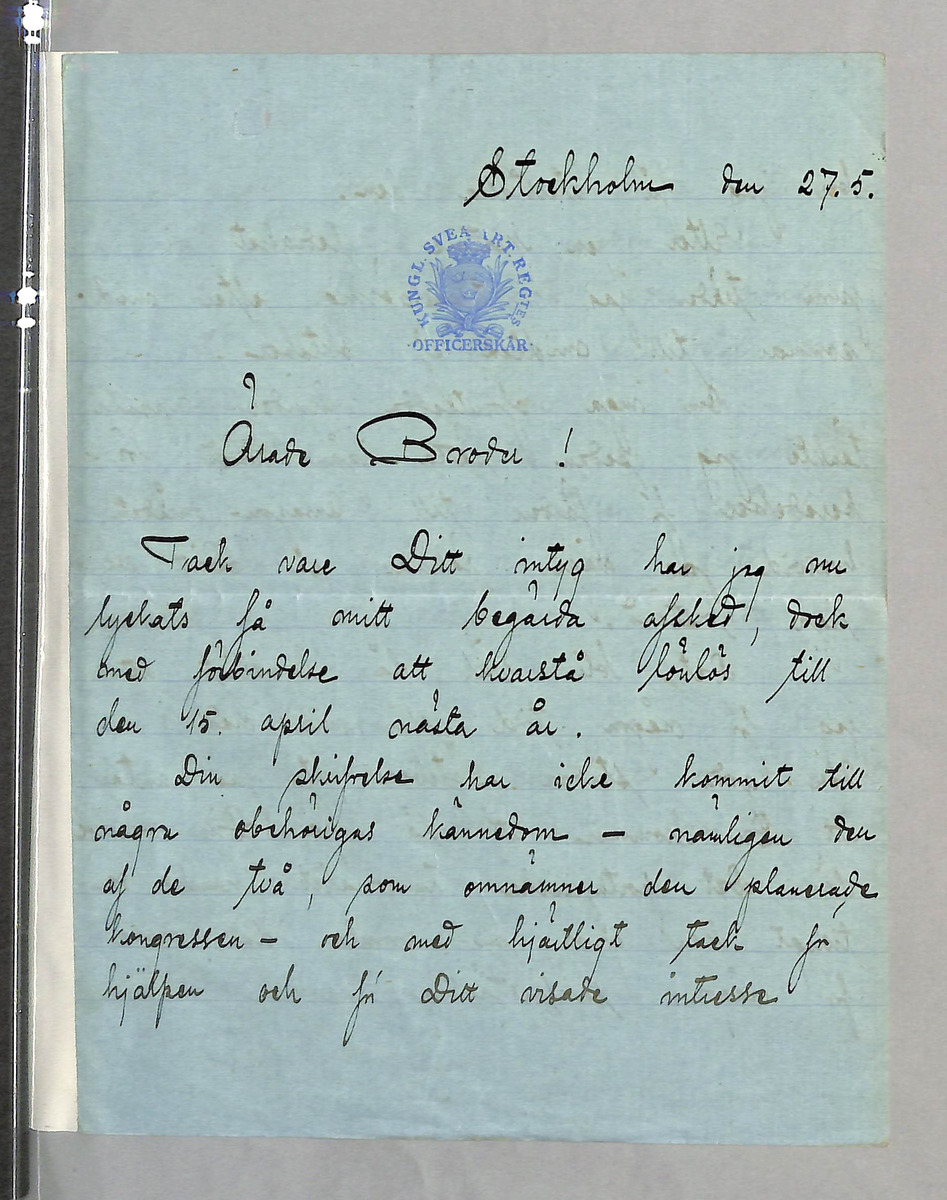 Stockholm den 27.5.
KUNGL. SVEA ART. REGTES
· OFFICERSKÅR ·
Ärade Broder !
Tack vare Ditt intyg har jag nu
lyckats få mitt begärda afsked, dock
med förbindelse att kvarstå lönlös till
den 15. april nästa år.
Din skrifvelse har icke kommit till
några obehörigas kännedom – nämligen den
af de två, som omnämner den planerade
kongressen – och med hjärtligt tack för
hjälpen och för Ditt visade intresse